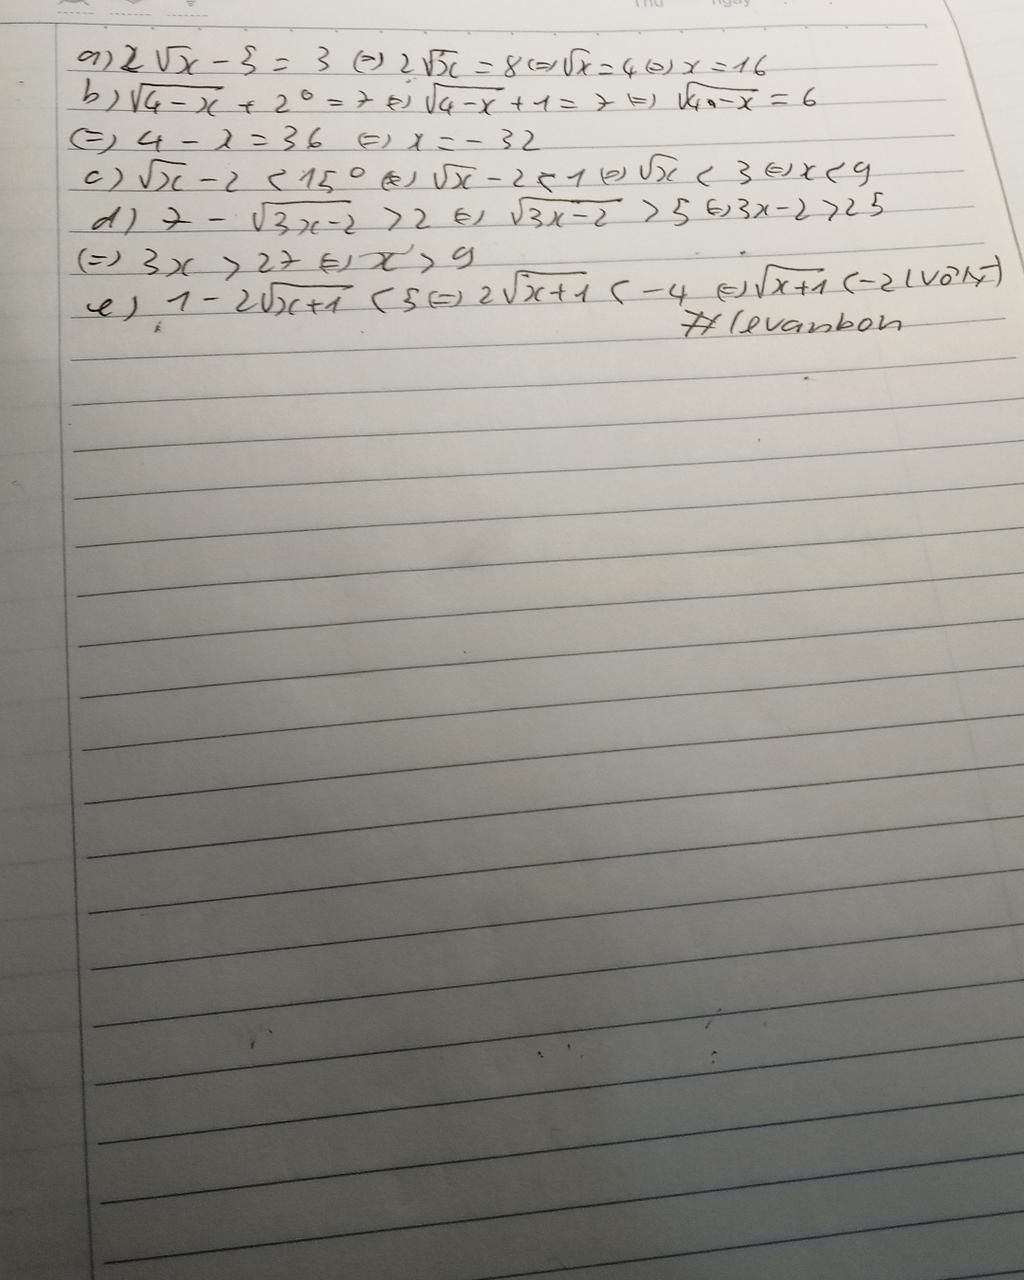 Thứ ngày
a) 2√x - 5 = 3 (=) 2√x = 8 (=) √x = 4 (=) x = 16
b) √(4-x) + 2⁰ = 7 (=) √(4-x) + 1 = 7 (=) √(4-x) = 6
(=) 4 - x = 36 (=) x = -32
c) √x - 2 < 15⁰ (=) √x - 2 < 1 (=) √x < 3 (=) x < 9
d) 7 - √(3x-2) > 2 (=) √(3x-2) > 5 (=) 3x-2 > 25
(=) 3x > 27 (=) x > 9
e) 1 - 2√(x+1) < 5 (=) 2√(x+1) < -4 (=) √(x+1) < -2 (VôN)
#levanbon